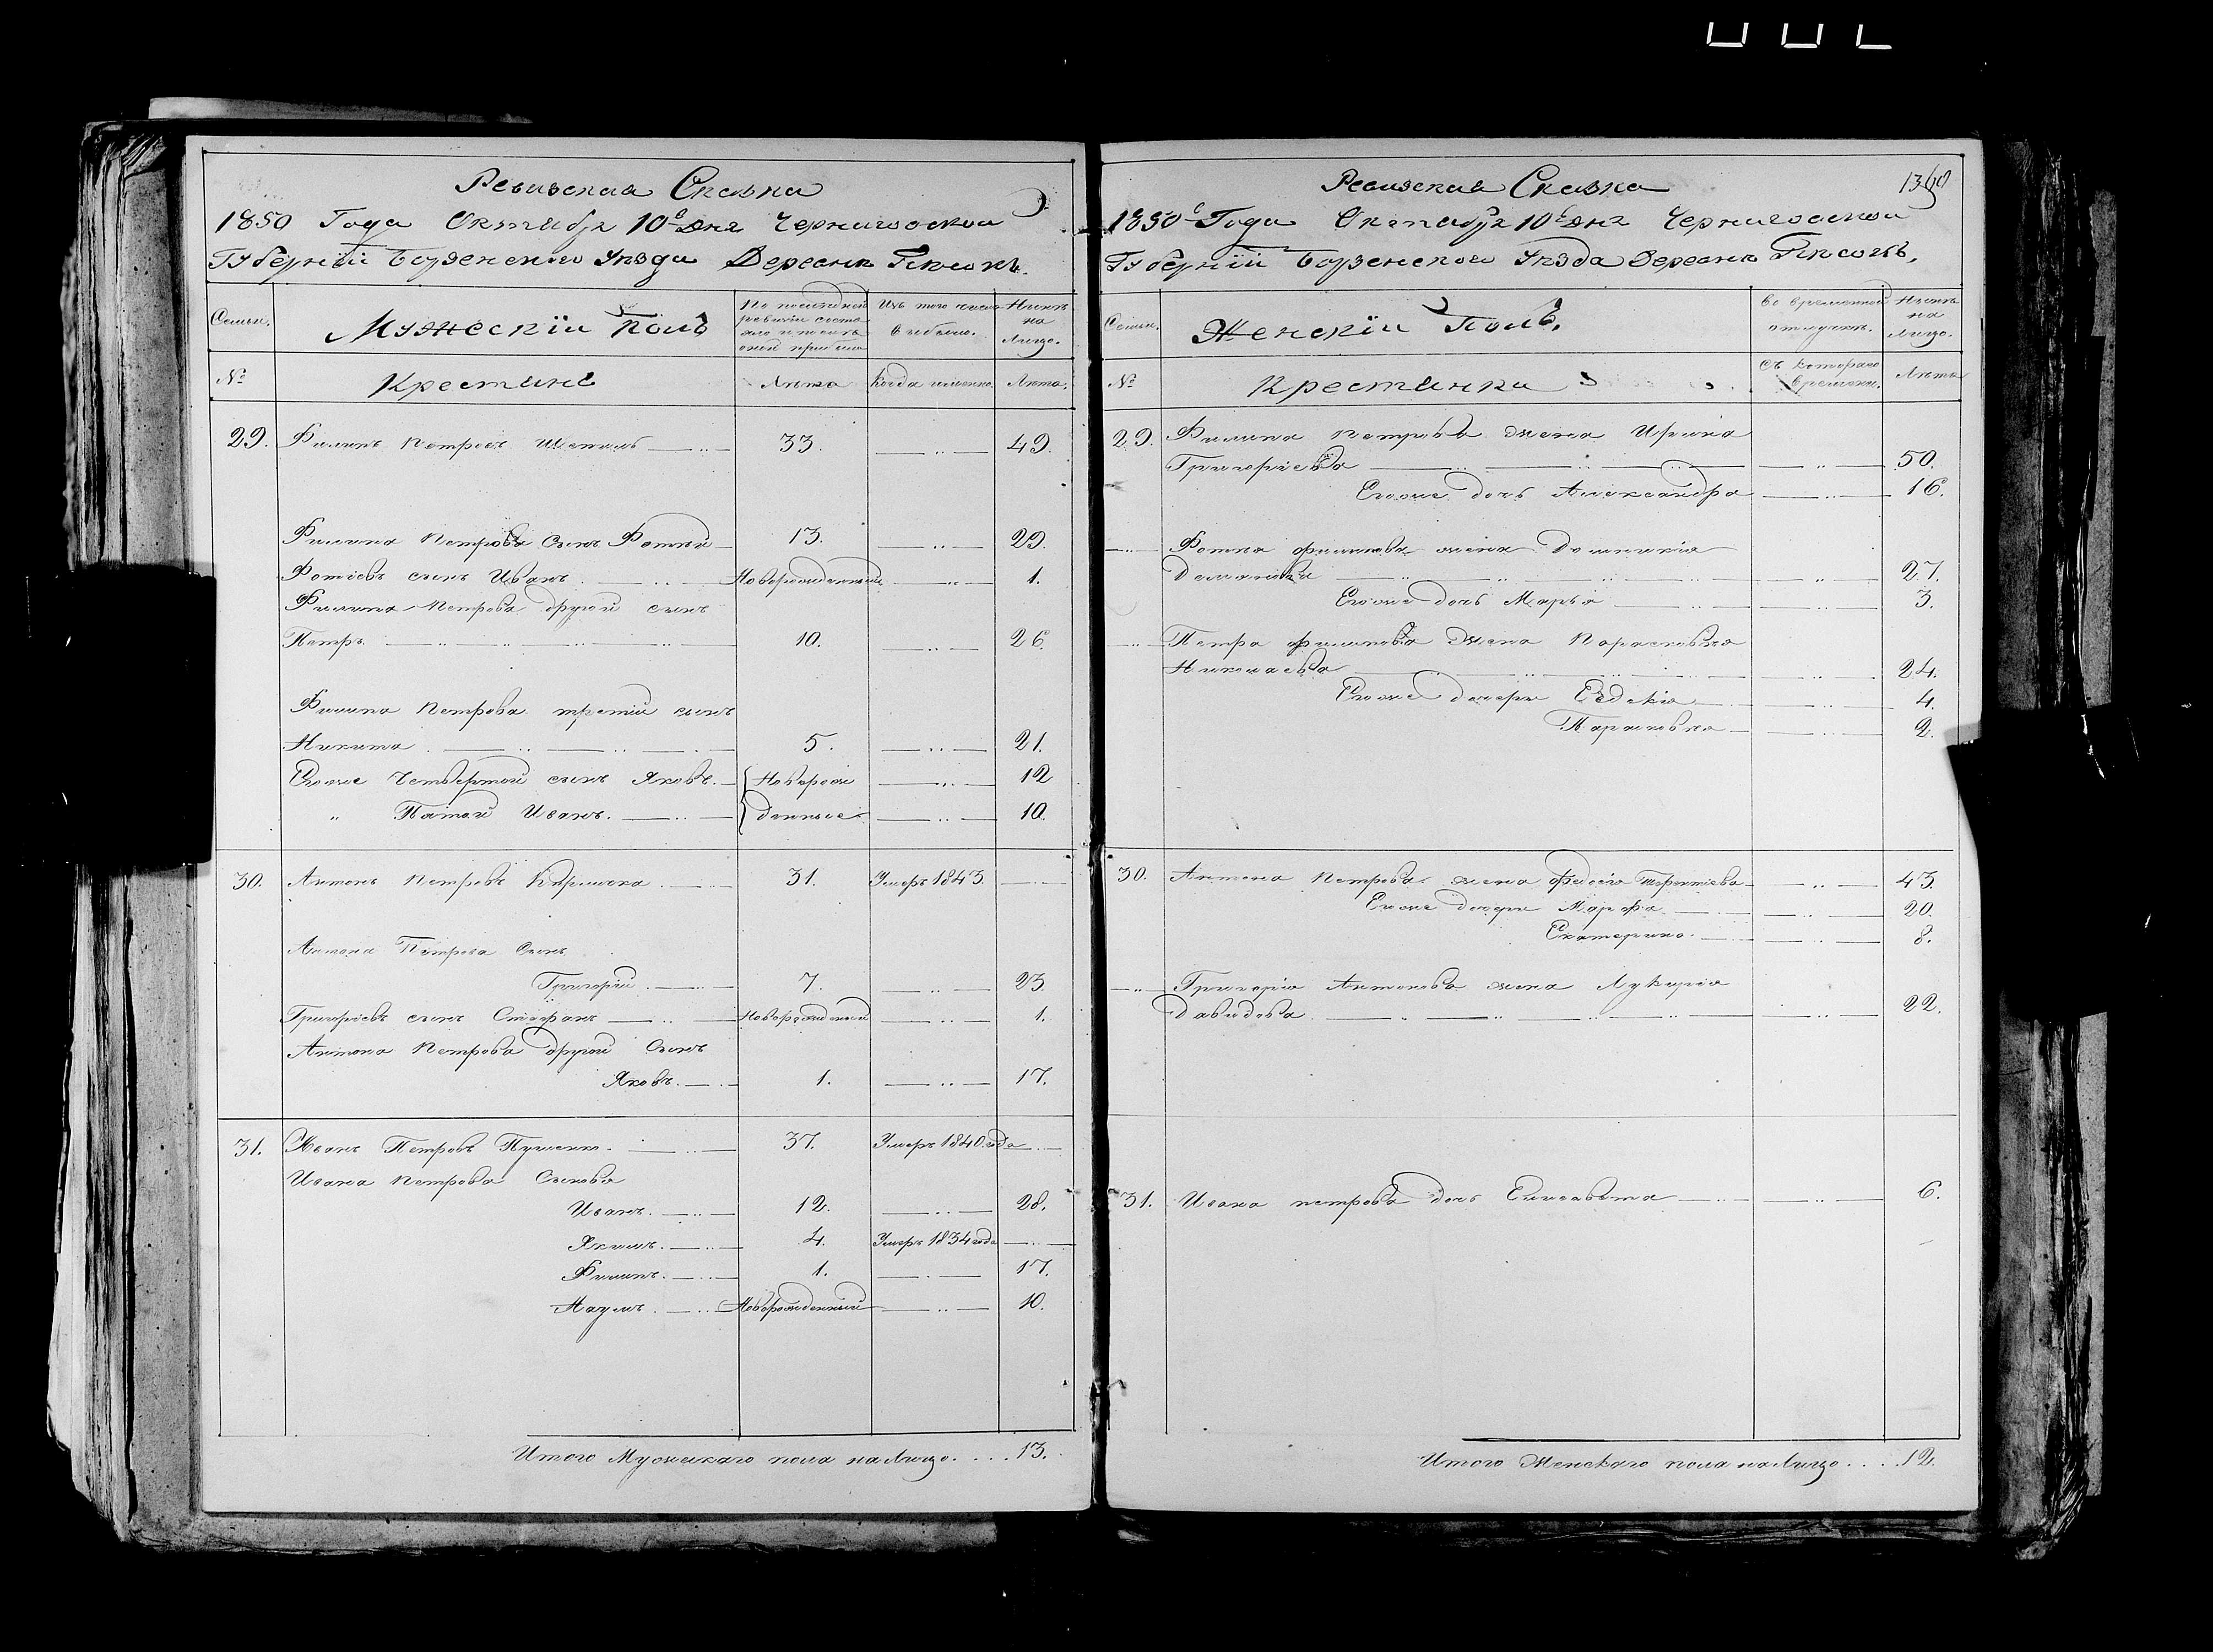 Ревизская Сказка
1850 Года Октября 10го Дня Черниговской
Губернїи Борзенскаго Уѣзда Деревни Пѣсокъ.
Семьи.
Мужескїи Полъ
По последней ревизіи состояло и после оной прибыло
Изъ того числа выбыло.
Нынѣ на Лицо.
№
Крестьяне
Лѣта
Когда именно.
Лѣта.
29. Филипъ Петровъ 33. 49.
Филипа Петрова Сынъ Фотѣй 13. 29.
Фотіевъ сынъ Иванъ. Новорожденный 1.
Филипа Петрова другой сынъ
Петръ. 10. 26.
Филипа Петрова третій сынъ
Никита. 5. 21.
Егоже Четвертой сынъ Яковъ. Новорож 12
" Пятой Иванъ. денные 10.
30. Антонъ Петровъ Кирличка 31. Умеръ 1843.
Антона Петрова Сынъ
Григорій. 7. 23
Григоріевъ сынъ Стефанъ Новорожденный 1.
Антона Петрова другой Сынъ
Яковъ. 1. 17.
31. Иванъ Петровъ 37. Умеръ 1840 года
Ивана Петрова Сыновья
Иванъ. 12. 28.
Якимъ. 4. Умеръ 1834 года
Филипъ. 1. 17.
Наумъ. Новорожденный 10.
Итого Мужескаго пола на Лицо. . . . 13.
1360
Ревизская Сказка
1850го Года Октября 10го Дня Черниговской
Губернїи Борзенскаго Уѣзда Деревни Пѣсокъ.
Семьи.
Женскїи Полъ.
Во временной отлучке.
Нынѣ на Лицо.
№
Крестьянки
Съ котораго времени.
Лѣта
29. Филипа Петрова жена Ирина
Григоріева 50.
Егоже дочь Александра 16.
Фотѣя Филипова жена Домникія
Демянова 27.
Егоже дочь Марья 3.
Петра Филипова жена Парасковья
Николаева 24.
Егоже дочери Евдокія 4.
Парасковья 2.
30. Антона Петрова жена Федосія Терентіева 43.
Егоже дочери Марфа 20.
Екатерина. 8.
Григорія Антонова жена Лукерія
Давидова 22.
31. Ивана петрова дочь Елисавета 6.
Итого Женскаго пола на Лицо. . . . 12.